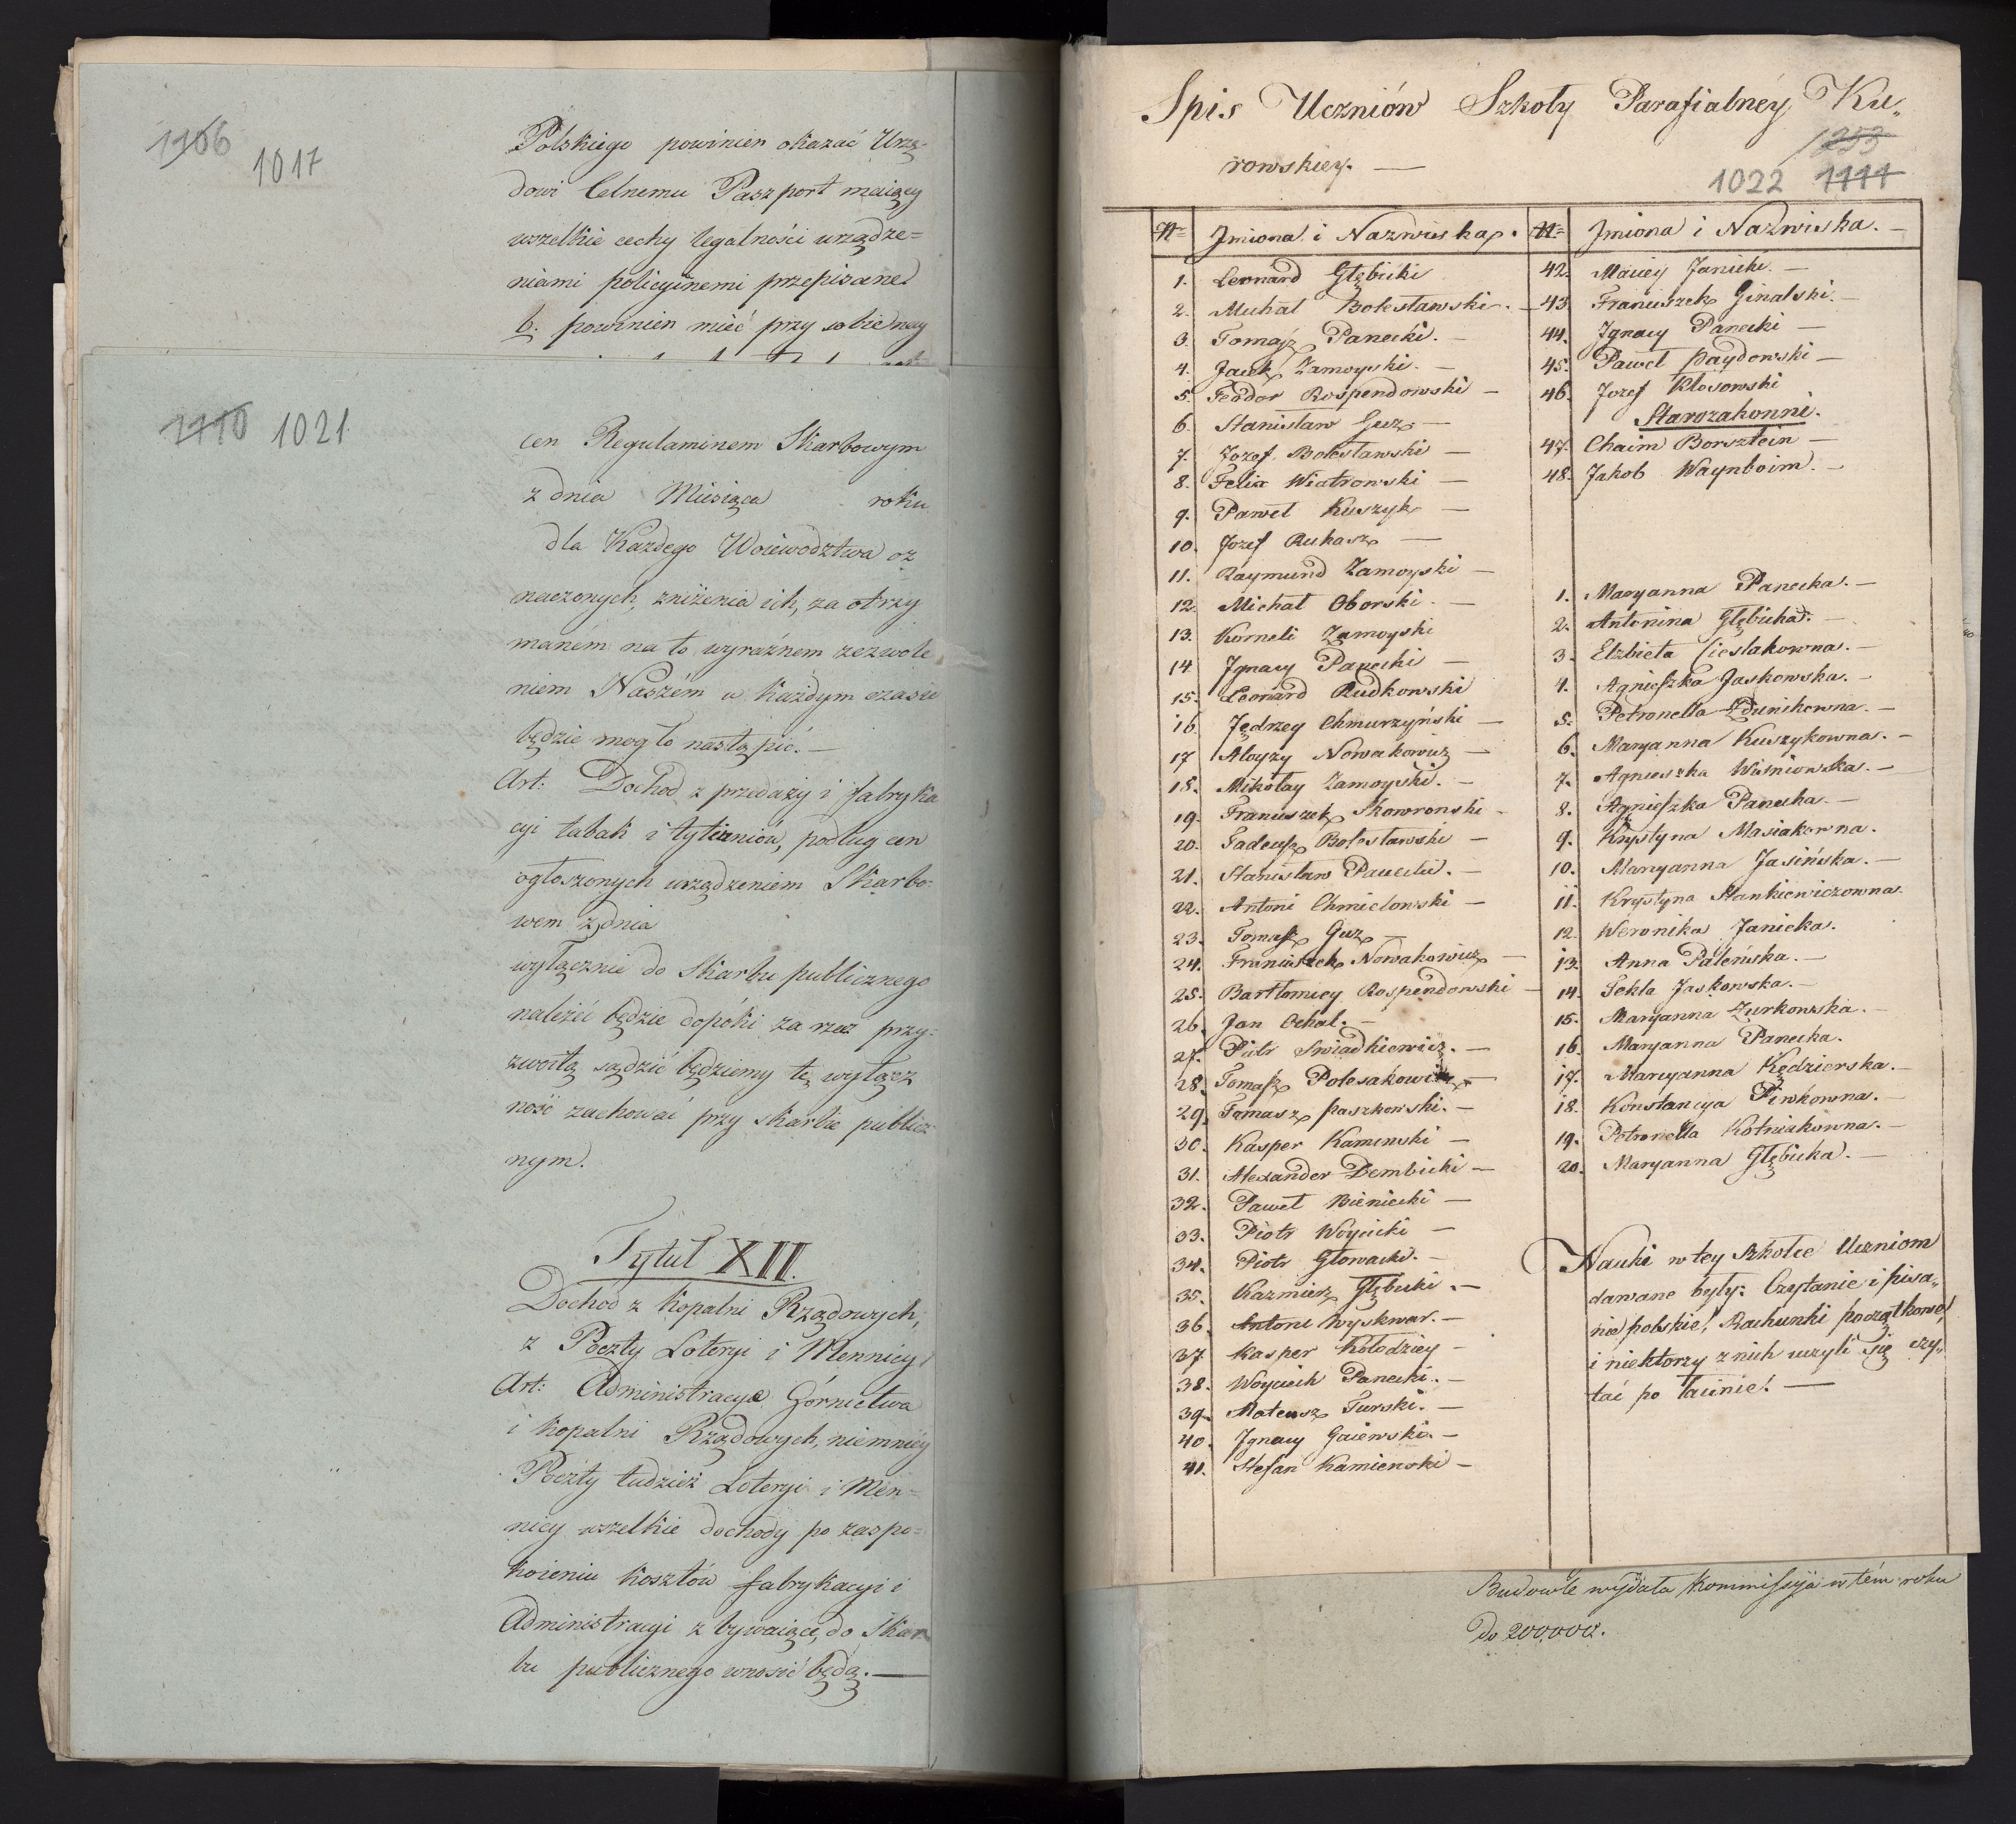 1106
1017
Polskiego powinien okazać Urzę-
dowi Celnemu Paszport maiący
wszelkie cechy legalności urządze=
niami policyinemi przepisane
b. powinien mieć przy sobie
1110 1021
cen Regulaminem Skarbowym
z dnia Miesiąca roku
dla Każdego Woiewodztwa oz
naczonych, zniżenia ich, za otrzy
maném na to wyraźnem zezwole
niem Naszém w każdym czasie
będzie mogło nastąpić. —
Art: Dochod z przedaży i fabryka
cyi tabak i tytiuniów, podług cen
ogłoszonych urządzeniem Skarbo-
wem z dnia
wyłącznie do Skarbu publicznego
należéć będzie dopóki za rzecz przy-
zwoitą sądzić będziemy tę wyłącz
ność zachować przy skarbie publicz
nym.
Tytuł XII.
Dochod z Kopalni Rządowych,
z Poczty Loteryi i Mennicy
Art: Administracya Górnictwa
i Kopalni Rządowych, niemniéy
Poczty tudzież Loteryi i Men=
nicy wszelkie dochody po zaspo=
koieniu kosztów fabrykacyi i
Administracyi zbywaiące, do Skar
bu publicznego wnosić będą. —
Spis Uczniów Szkoły Parafialnéy Ku„
rowskiey. —
1022 1111
N= Jmiona i Nazwiska.
1. Leonard Głębicki
2. Michał Bolesławski. —
3. Tomasz Panecki. —
4. Jacek Zamoyski. —
5. Teodor Rospendowski —
6. Stanisław Guz —
7. Jozef Bolesławski —
8. Felix Wiatrowski —
9. Paweł Kuszyk —
10. Jozef Rukasz —
11. Raymund Zamoyski —
12. Michał Oborski. —
13. Korneli Zamoyski
14 Jgnacy Panecki —
15. Leonard Rudkowski
16 Jędrzey Chmurzyński —
17 Aloyzy Nowakowicz —
18. Mikołay Zamoyski. —
19. Franciszek Skowronski -
20. Tadeusz Bolesławski —
21. Stanisław Panecki. —
22. Antoni Chmielowski —
23. Tomasz Guz —
24. Franciszek Nowakowicz —
25. Bartłomiey Rospendowski —
26. Jan Ochal. —
27. Piotr Swiadkiewicz. —
28. Tomasz Polesakowicz —
29. Tomasz Paszkowski. —
30. Kasper Kaminski —
31. Alexander Dembicki —
32. Paweł Bieniecki —
33. Piotr Woycicki —
34. Piotr Głowacki. —
35. Kazmierz Głębicki. —
36. Antoni Wyskwar. —
37. Kasper Kołodziey —
38. Woyciech Panecki. —
39. Mateusz Turski. —
40. Jgnacy Gaiewski. —
41. Stefan Kamienski —
N= Jmiona i Nazwiska. —
42. Maciey Janicki. —
43. Franciszek Ginalski. —
44. Jgnacy Panecki —
45. Paweł Paydowski —
46. Jozef Kłosowski
Starozakonni.
47. Chaim Borsztein —
48. Jakob Waynboim. —
1. Maryanna Panecka. —
2. Antonina Głębicka. —
3. Elzbieta Cieslakowna. —
4. Agnieszka Jaskowska. —
5. Petronella Zdunikowna. —
6. Maryanna Kuszykowna. —
7. Agnieszka Wisniowska. —
8. Agnieszka Panecka. —
9. Krystyna Masiakowna.
10. Maryanna Jasińska. —
11. Krystyna Stankiewiczowna.
12 Weronika Janicka.
13. Anna Paleńska. —
14. Tekla Jaskowska. —
15. Maryanna Zurkowska. —
16. Maryanna Panecka.
17. Maryanna Kędzierska. —
18. Konstancya Piwkowna. —
19. Petronella Kotniakowna. —
20. Maryanna Głębicka. —
Nauki w tey Szkole Uczniom
dawane były: Czytanie i pisa„
nie polskie, Rachunki początkowe,
i niektorzy z nich uczyli się czy„
tać po łacinie. —
Budowle wydała Kommissya w tém roku
do 200,000.